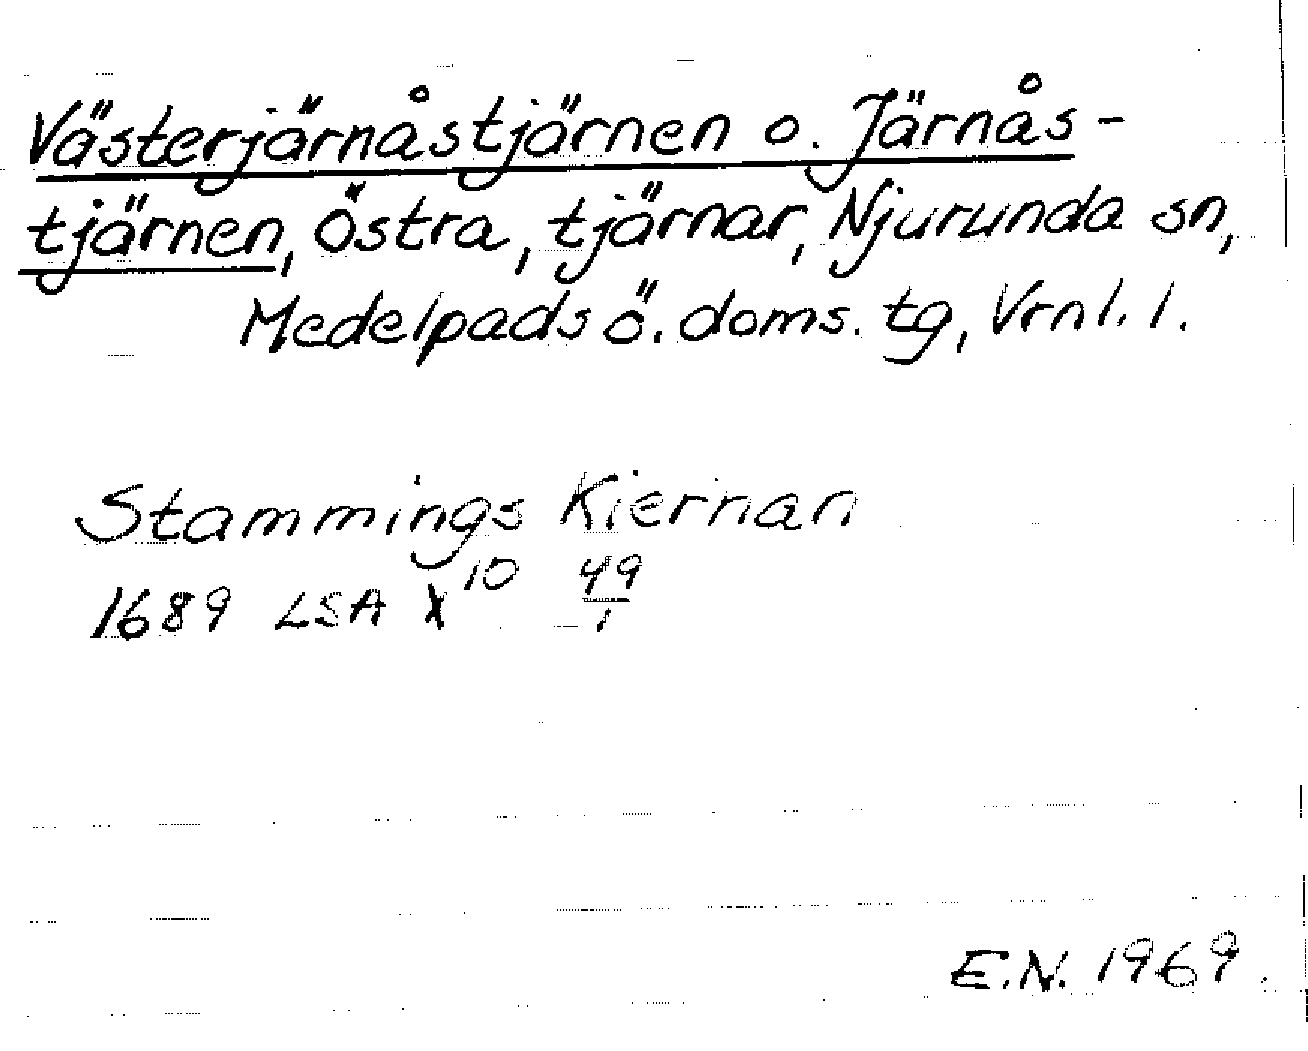 Västerjärnåstjärnen o. Järnås-
tjärnen, Östra, tjärnar, Njurunda sn,
Medelpads ö. doms. tg, Vrnl. 1.
Stammings Kiernan
1689 LSA X 10 49/1
E.N. 1969.